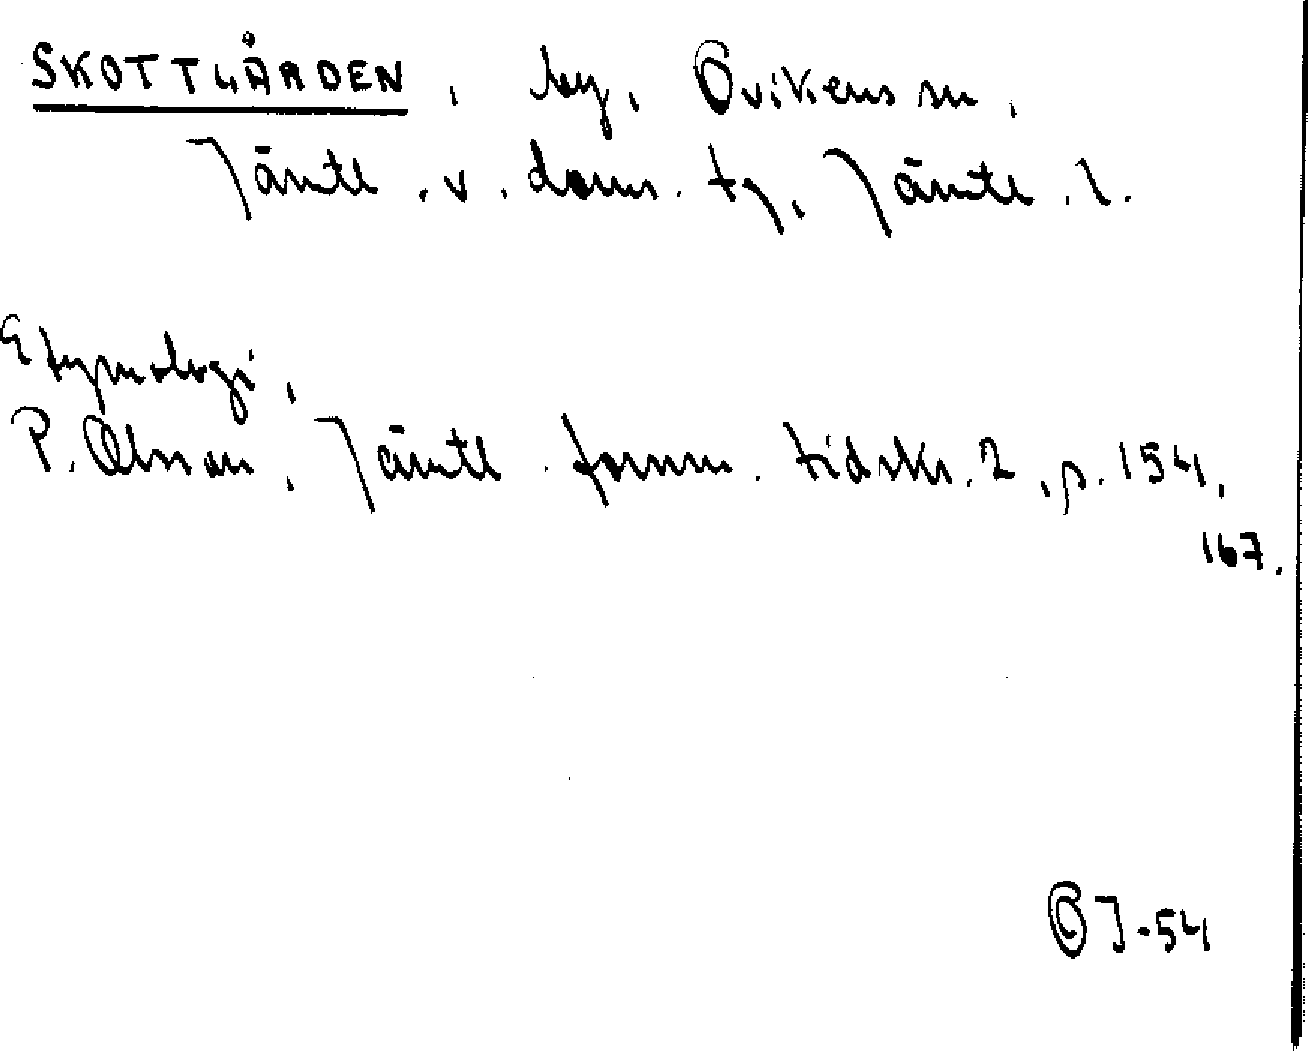 SKOTTGÅRDEN, by, Ovikens sn,
Jämtl. v. doms. tg, Jämtl. l.
Etymologi,
P. Olsson, Jämtl. fornm. tidskr. 2, s. 154,
167.
OJ-54